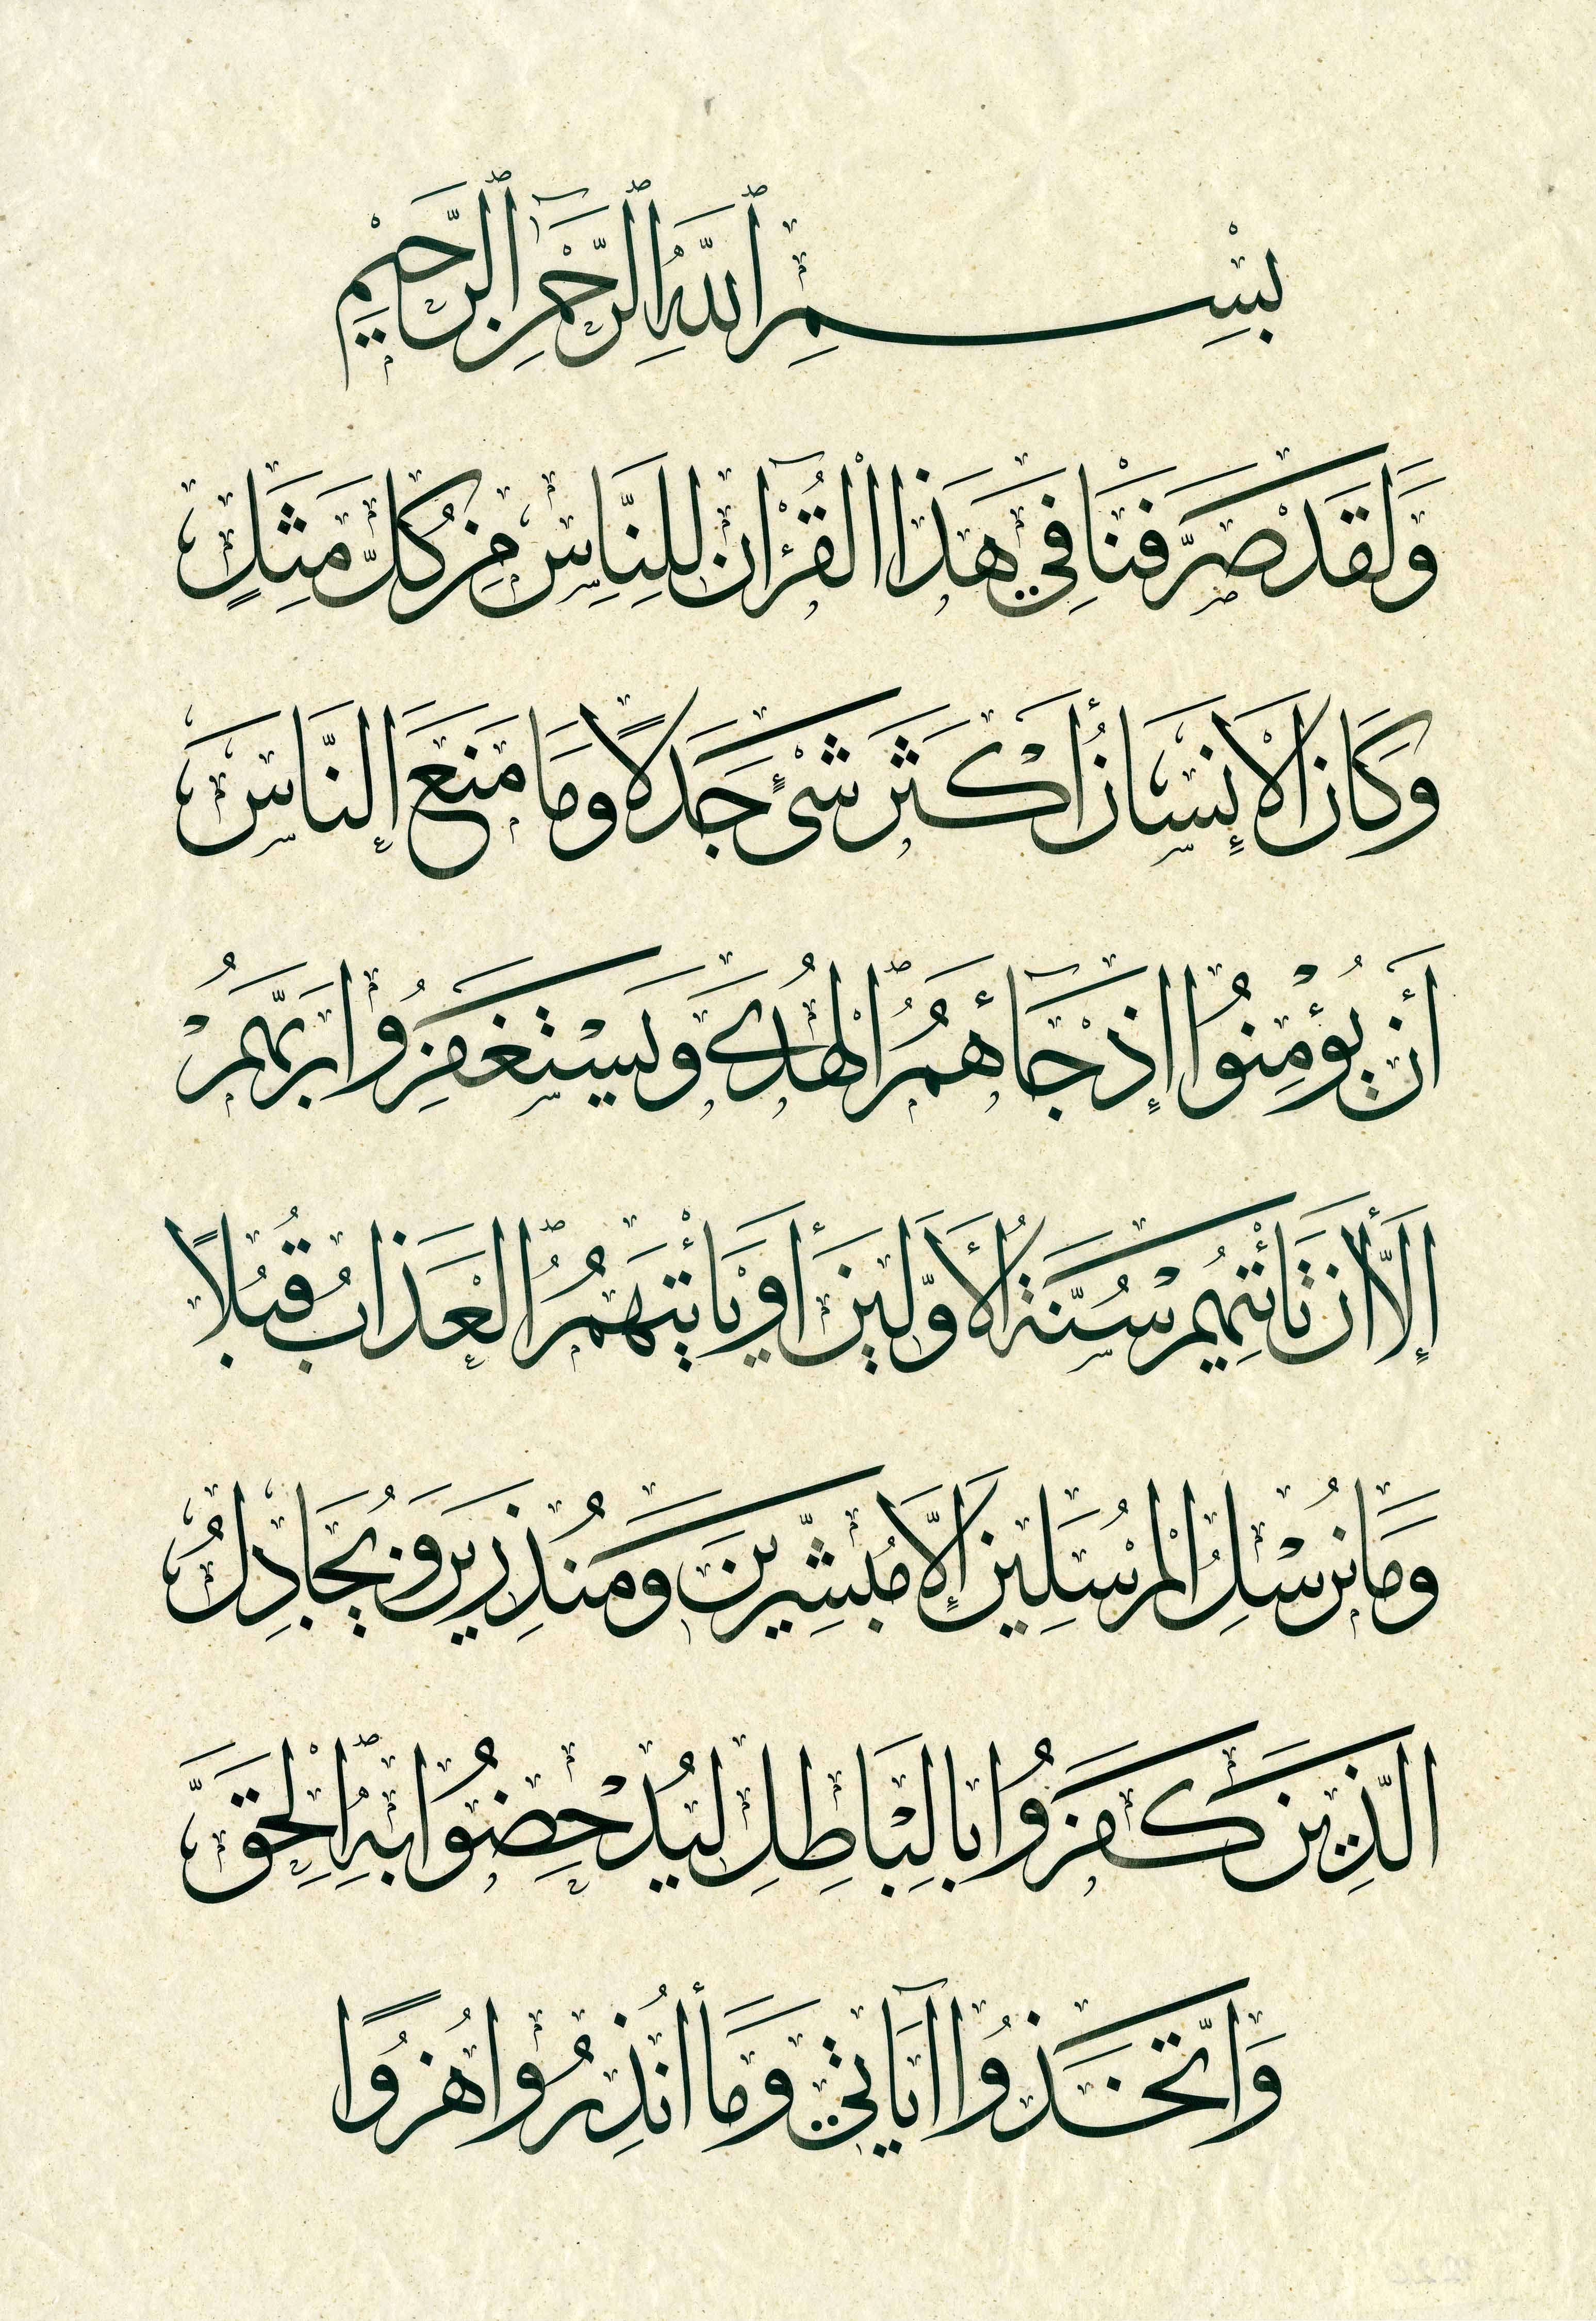 بِسْمِ ٱللَّهِ ٱلرَّحْمَٰنِ ٱلرَّحِيمِ
وَلَقَدْ صَرَّفْنَا فِي هَذَا الْقُرْآنِ لِلنَّاسِ مِن كُلِّ مَثَلٍ
وَكَانَ الْإِنسَانُ أَكْثَرَ شَيْءٍ جَدَلًا وَمَا مَنَعَ النَّاسَ
أَن يُؤْمِنُوا إِذْ جَاءَهُمُ الْهُدَى وَيَسْتَغْفِرُوا رَبَّهُمْ
إِلَّا أَن تَأْتِيَهُمْ سُنَّةُ الْأَوَّلِينَ أَوْ يَأْتِيَهُمُ الْعَذَابُ قُبُلًا
وَمَا نُرْسِلُ الْمُرْسَلِينَ إِلَّا مُبَشِّرِينَ وَمُنذِرِينَ وَيُجَادِلُ
الَّذِينَ كَفَرُوا بِالْبَاطِلِ لِيُدْحِضُوا بِهِ الْحَقَّ
وَاتَّخَذُوا آيَاتِي وَمَا أُنذِرُوا هُزُوًا